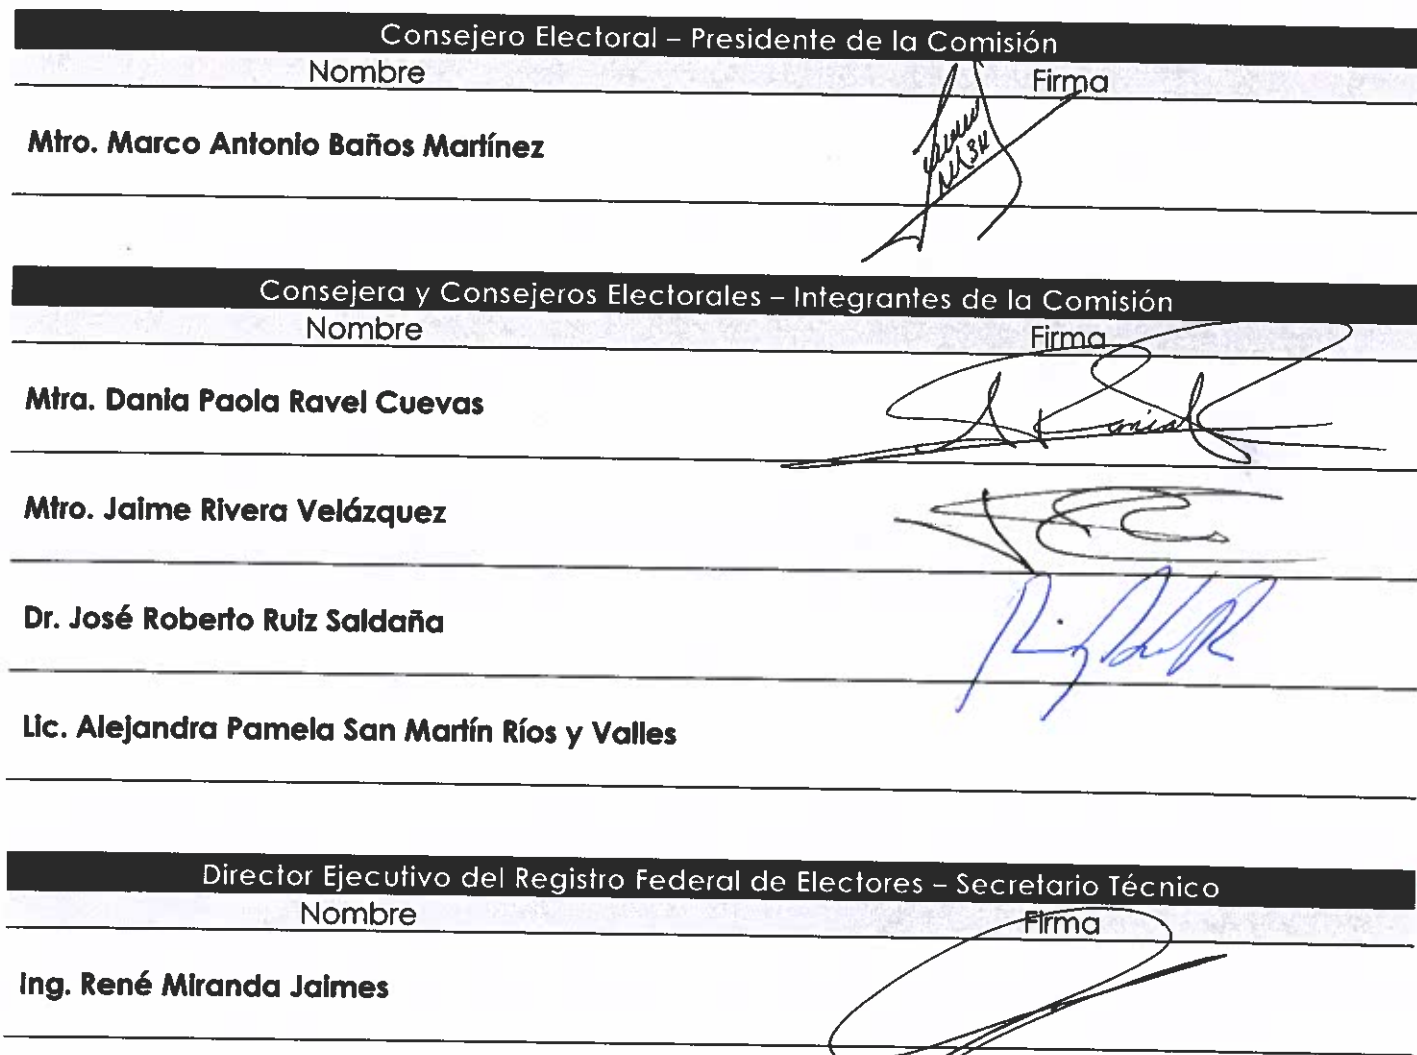 Consejero Electoral – Presidente de la Comisión
Nombre Firma
Mtro. Marco Antonio Baños Martínez
Consejera y Consejeros Electorales – Integrantes de la Comisión
Nombre Firma
Mtra. Dania Paola Ravel Cuevas
Mtro. Jaime Rivera Velázquez
Dr. José Roberto Ruiz Saldaña
Lic. Alejandra Pamela San Martín Ríos y Valles
Director Ejecutivo del Registro Federal de Electores – Secretario Técnico
Nombre Firma
Ing. René Miranda Jaimes